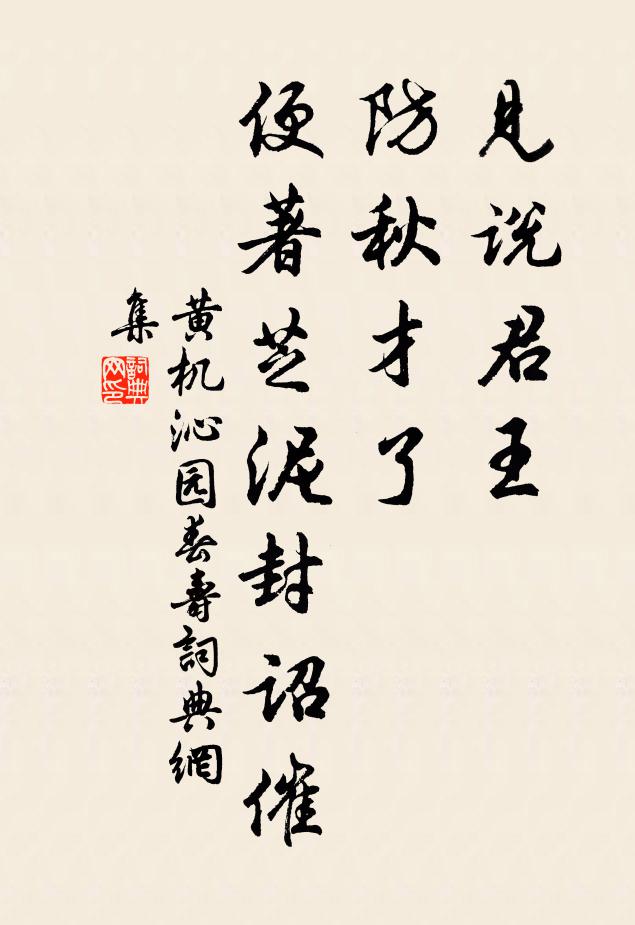 见说君王
防秋才了
便著芝泥封诏催
黄机沁园春寿詞典網
集
詞典网印